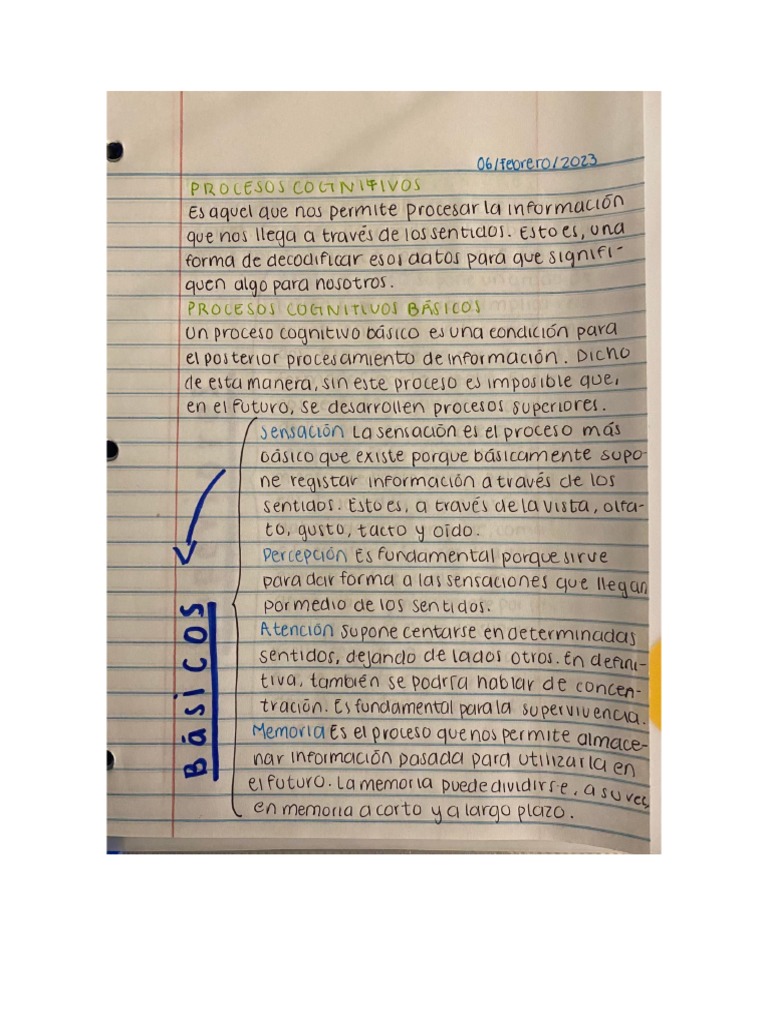 06/febrero/2023
PROCESOS COGNITIVOS
Es aquel que nos permite procesar la información
que nos llega a través de los sentidos. Esto es, una
forma de decodificar esos datos para que signifi-
quen algo para nosotros.
PROCESOS COGNITIVOS BÁSICOS
Un proceso cognitivo básico es una condición para
el posterior procesamiento de información. Dicho
de esta manera, sin este proceso es imposible que,
en el futuro, se desarrollen procesos superiores.
Sensación La sensación es el proceso más
básico que existe porque básicamente supo-
ne registar información a través de los
sentidos. Esto es, a través de la vista, olfa-
to, gusto, tacto y oído.
Percepción Es fundamental porque sirve
para dar forma a las sensaciones que llegan
por medio de los sentidos.
Atención supone centarse en determinadas
sentidos, dejando de lados otros. En defini-
tiva, también se podría hablar de concen-
tración. Es fundamental para la supervivencia.
Memoria Es el proceso que nos permite almace-
nar información pasada para utilizarla en
el futuro. La memoria puede dividirse, a su vez,
en memoria a corto y a largo plazo.
Básicos